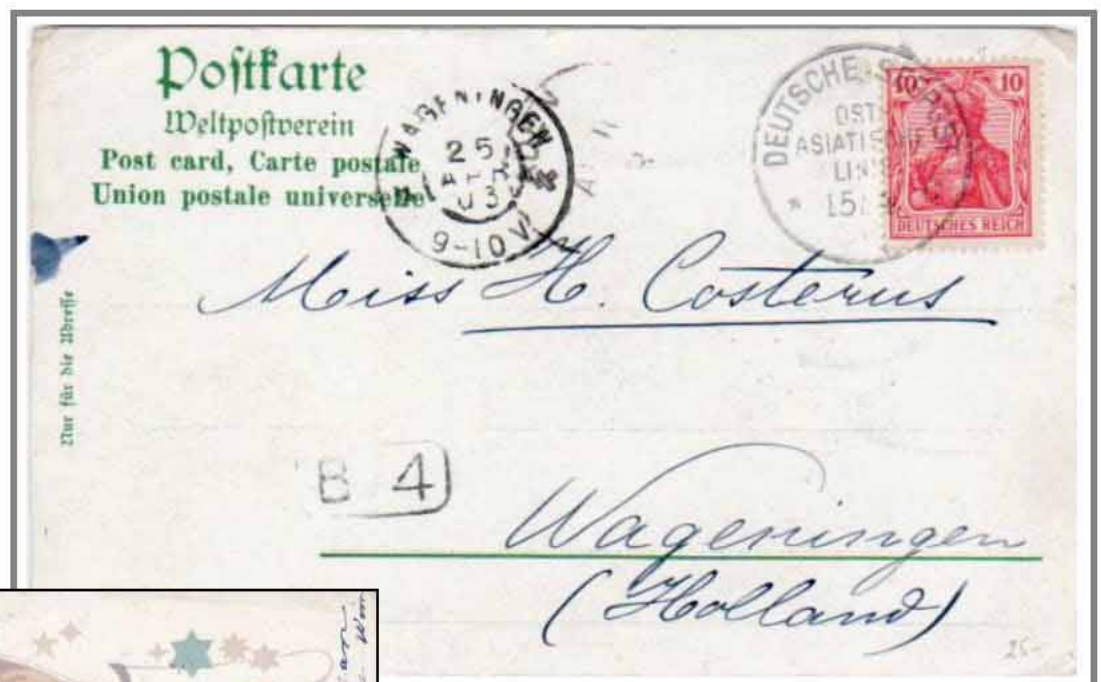 Postkarte
Weltpostverein
Post card, Carte postale
Union postale universelle
WAGENINGEN
25
03
9-10 V
DEUTSCHE
OST-
ASIATISCHE
LINIE
15
10 10
DEUTSCHES REICH
Nur für die Adresse
Miss H. Costerus
B 4
Wageningen
(Holland)
25-